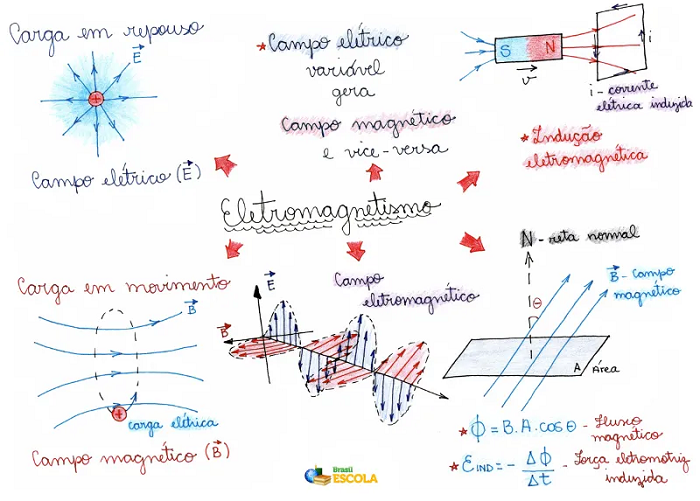 Carga em repouso
E
+
Campo elétrico (E)
* Campo elétrico
variável
gera
Campo magnético
e vice-versa
S N
v
i
i - corrente
elétrica induzida
* Indução
eletromagnética
Eletromagnetismo
Carga em movimento
B
+
carga elétrica
Campo magnético (B)
Campo
eletromagnético
E
B
N - reta normal
θ
B - campo
magnético
A Área
* ϕ = B.A.cosθ - Fluxo
magnético
* εIND = - Δϕ/Δt - Força eletromotriz
induzida
Brasil
ESCOLA